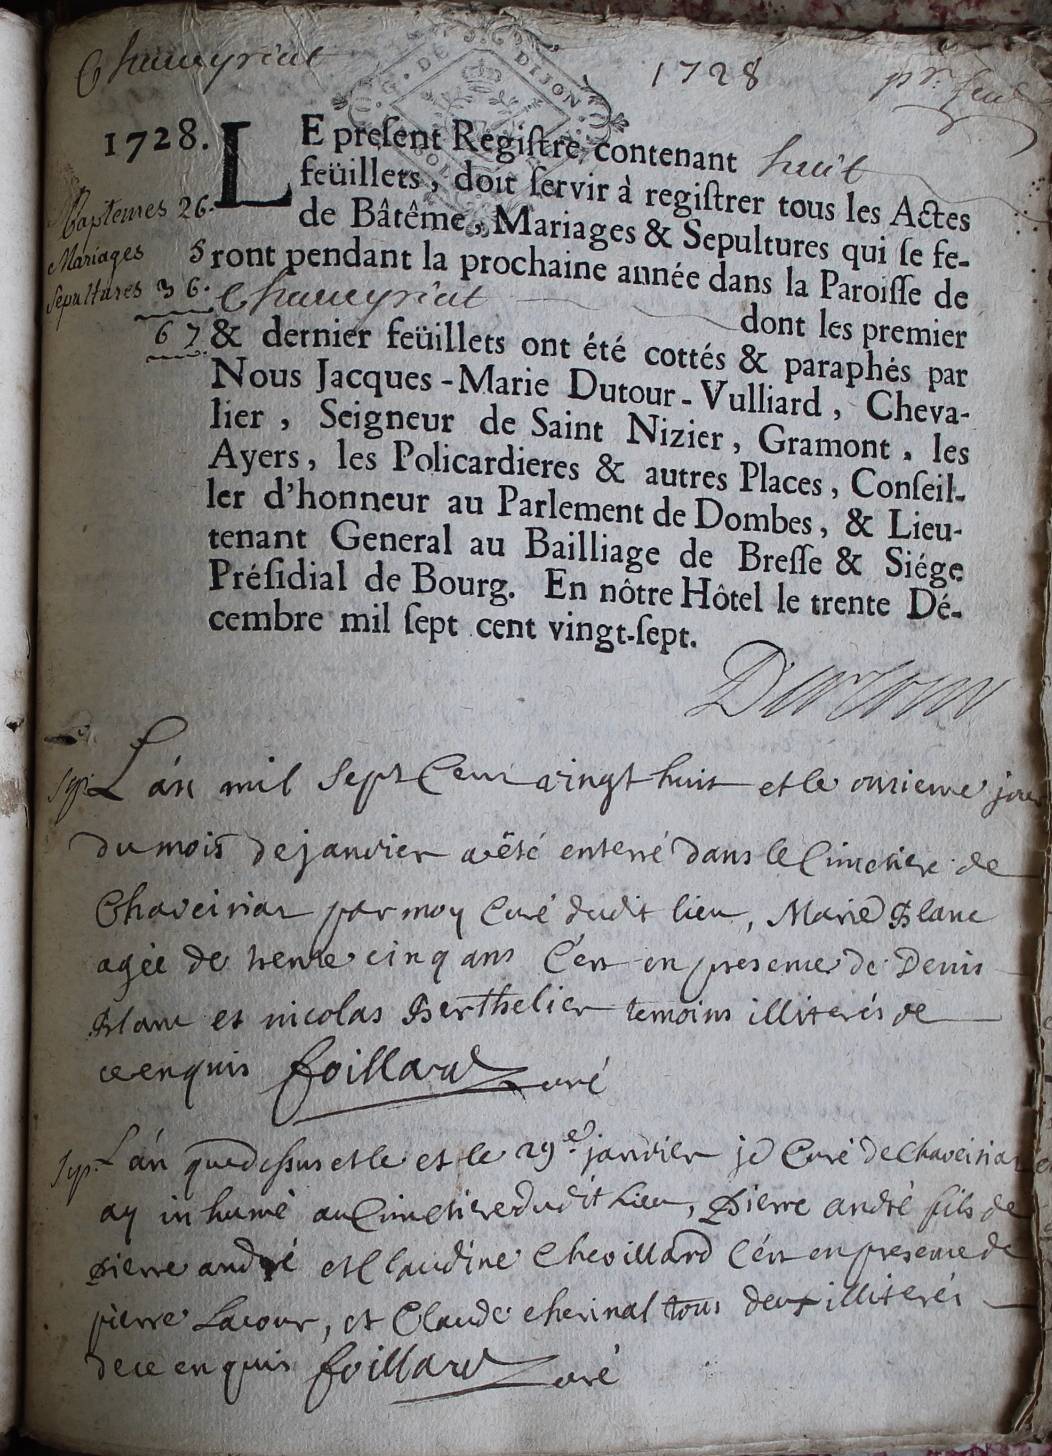 Chaveyriat 1728 pr. feuil
G. DE DIJON
1728. LE preſent Regiſtre, contenant huit
feüillets, doit ſervir à regiſtrer tous les Actes
Baptemes 26. de Bâtême, Mariages & Sepultures qui ſe fe-
Mariages 5 ront pendant la prochaine année dans la Paroiſſe de
Sepultures 36. Chaveyriat dont les premier
67 & dernier feüillets ont été cottés & paraphés par
Nous Jacques-Marie Dutour-Vulliard, Cheva-
lier, Seigneur de Saint Nizier, Gramont, les
Ayers, les Policardieres & autres Places, Conſeil-
ler d'honneur au Parlement de Dombes, & Lieu-
tenant General au Bailliage de Breſſe & Siége
Préſidial de Bourg. En nôtre Hôtel le trente Dé-
cembre mil ſept cent vingt-ſept.
Sep. L'an mil Sept Cent vingt huit et le onzieme jour
du mois de janvier a été enterré dans le Cimetiere de
Chaveiriat par moy Curé dudit lieu, Marie Blanc
agée de trente cinq ans C'est en presence de Denis
Blanc et nicolas Berthelier temoins illiterés de
ce enquis foillard curé
Sep. L'an que dessus et le et le 29e janvier je Curé de Chaveiriat
ay inhumé au Cimetiere dudit Lieu, Pierre andré fils de
pierre andré et Claudine Chevillard C'est en presence de
pierre Lacour, et Claude cherinal tous deux illiterés
de ce enquis foillard curé